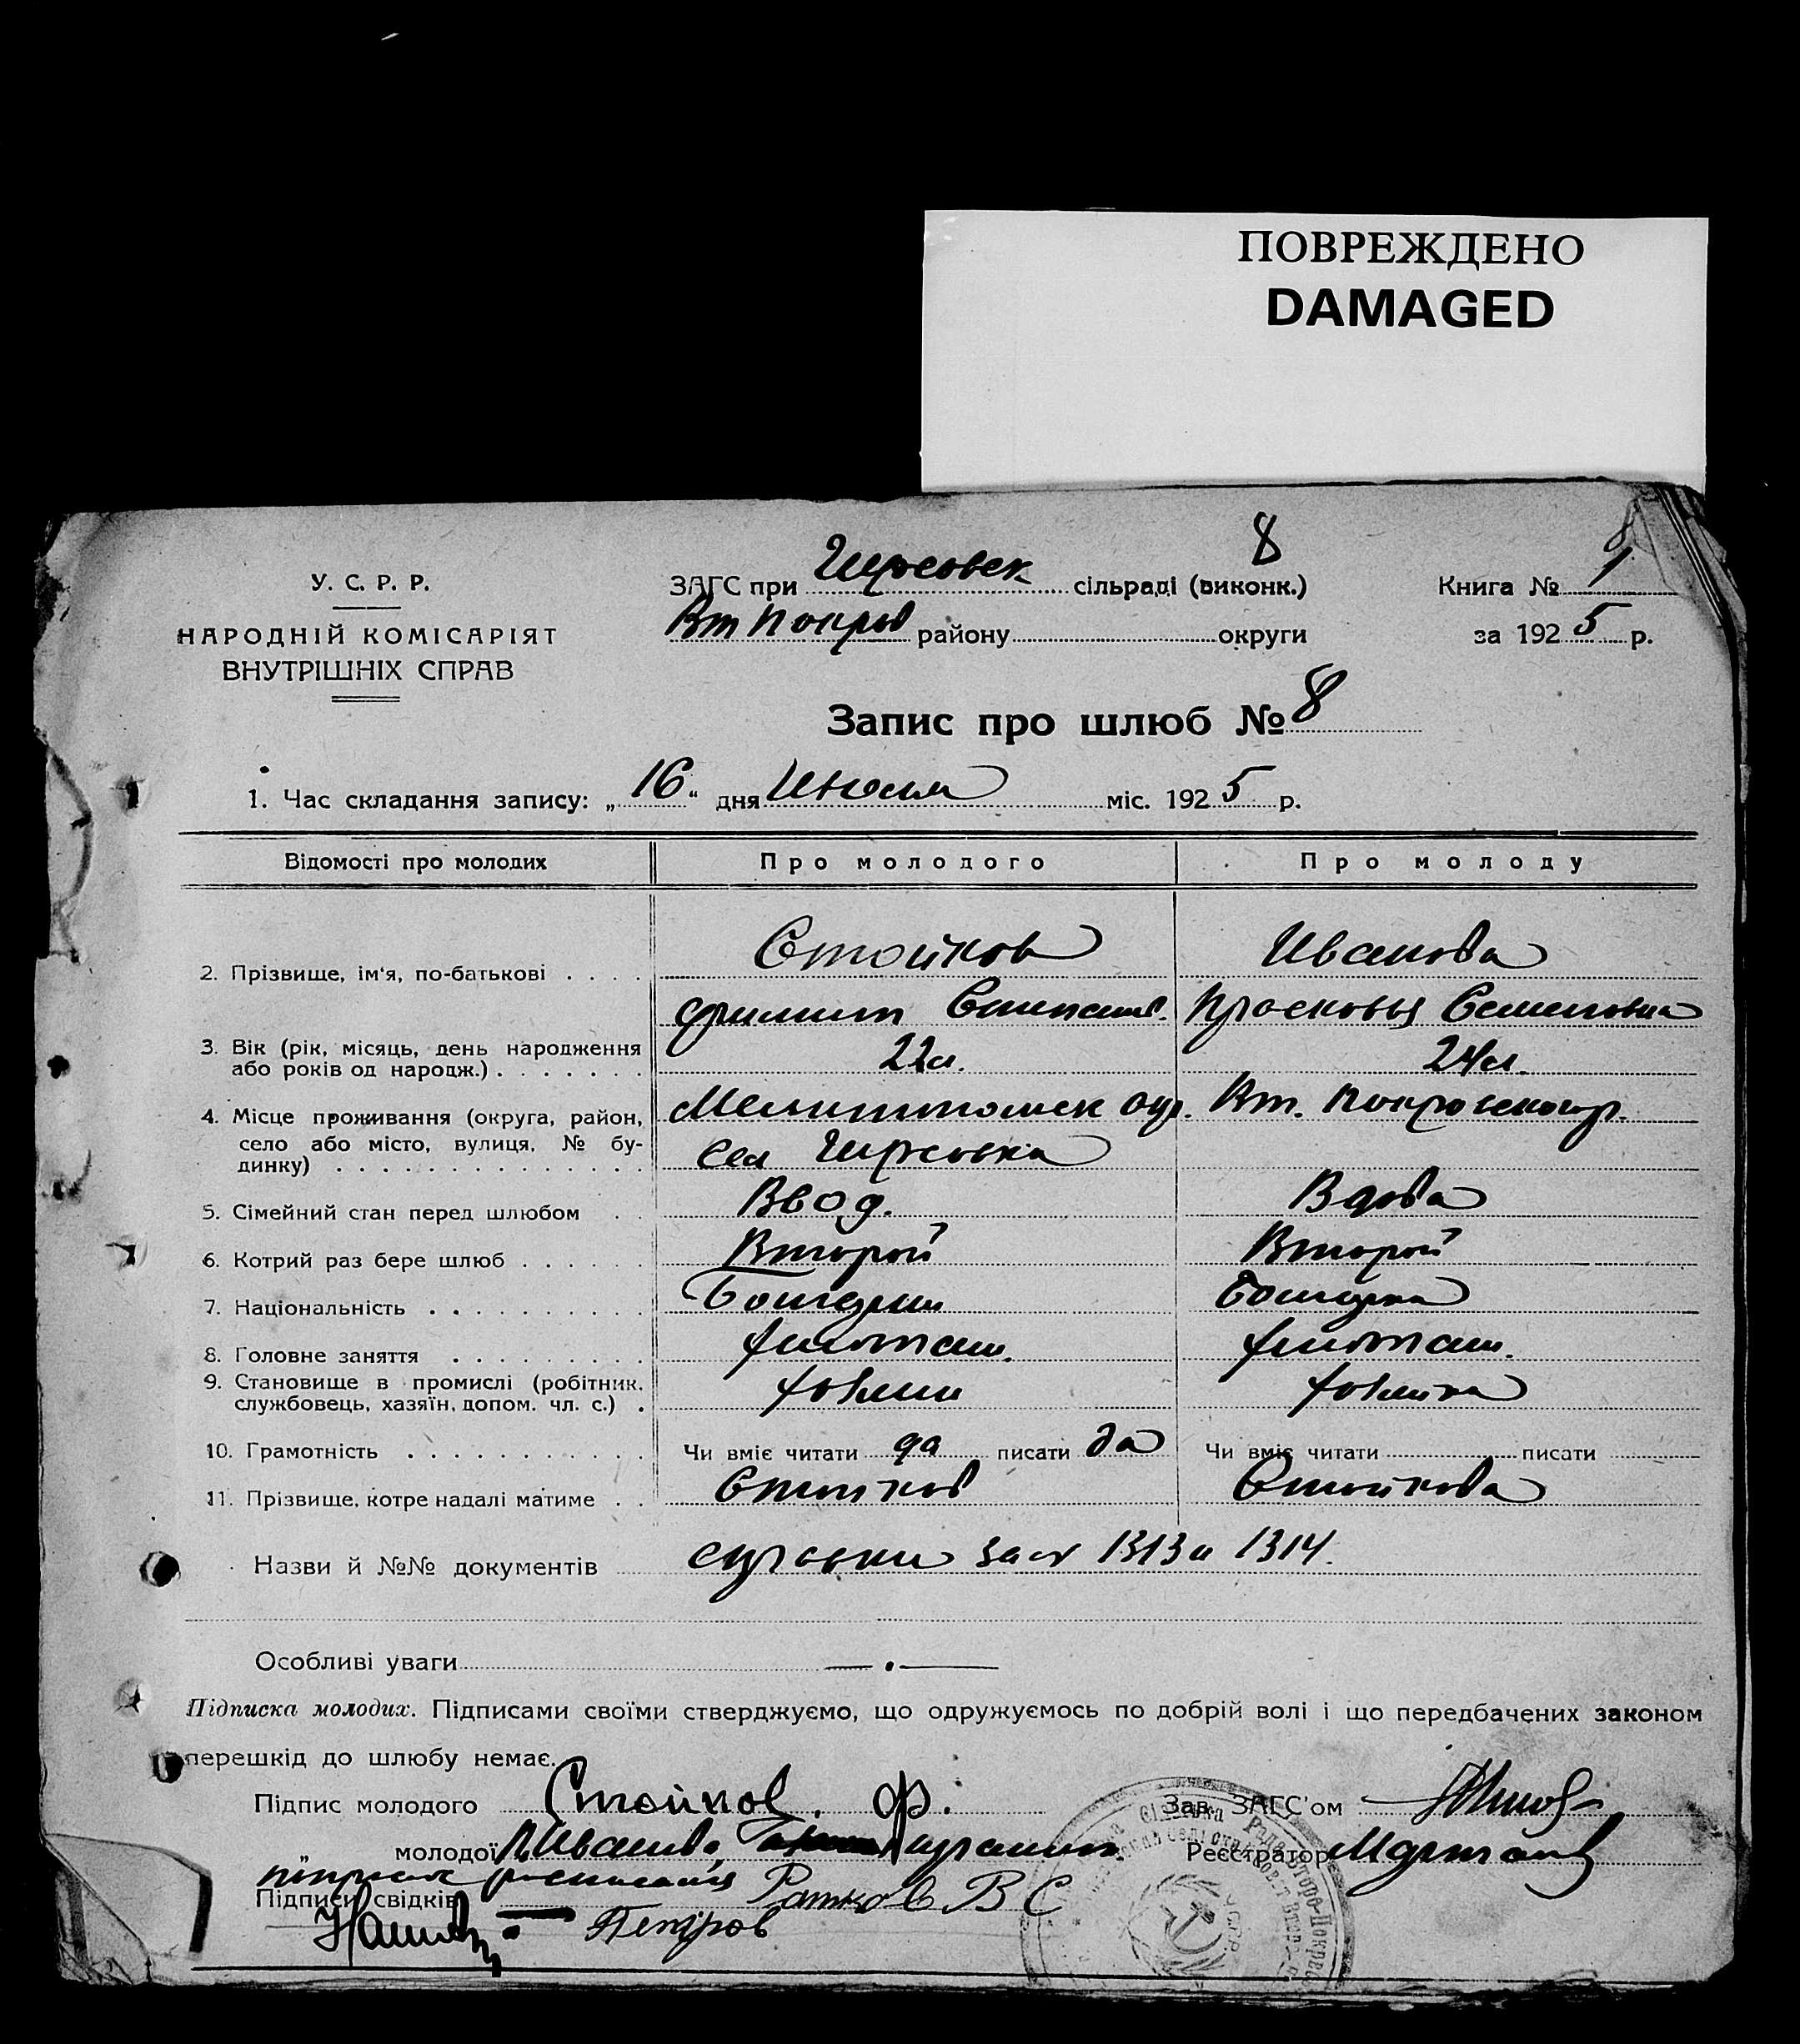 ПОВРЕЖДЕНО
DAMAGED
8
8
У. С. Р. Р.
НАРОДНІЙ КОМІСАРІЯТ
ВНУТРІШНІХ СПРАВ
ЗАГС при Гирсовск сільраді (виконк.)
Вт Покров району округи
Книга № 1
за 1925 р.
Запис про шлюб № 8
1. Час складання запису: „16“ дня Июля міс. 1925 р.
Відомості про молодих Про молодого Про молоду
2. Прізвище, ім‘я, по-батькові . . . . Стойков Иванова
Филипп Степанов. Прасковья Семеновна
3. Вік (рік, місяць, день народження
або років од народж.) . . . . . . . 22л. 24л.
4. Місце проживання (округа, район, Мелитпольск окр. Вт. Покровского р.
село або місто, вулиця, № бу-
динку) . . . . . . . . . . . . . . Сел Гирсовка
5. Сімейний стан перед шлюбом . . Вдов. Вдова
6. Котрий раз бере шлюб . . . . . . Второй Второй
7. Національність . . . . . . . . . . Болгарин Болгарка
8. Головне заняття . . . . . . . . . хлебопаш. хлебопаш.
9. Становище в промислі (робітник,
службовець, хазяїн, допом. чл. с.) . хозяин хозяйка
10. Грамотність . . . . . . . . . . . Чи вміє читати да писати да Чи вміє читати писати
11. Прізвище, котре надалі матиме . . Стойков Стойкова
Назви й №№ документів справки за № 1313 и 1314.
Особливі уваги
Підписка молодих. Підписами своїми стверджуємо, що одружуємось по добрій волі і що передбачених законом
перешкід до шлюбу немає.
Підпис молодого Стойков. Ф. Зав. ЗАГС’ом
„ молодої П Иванова Реєстратор
Підписи свідків Ратков В С
Петров